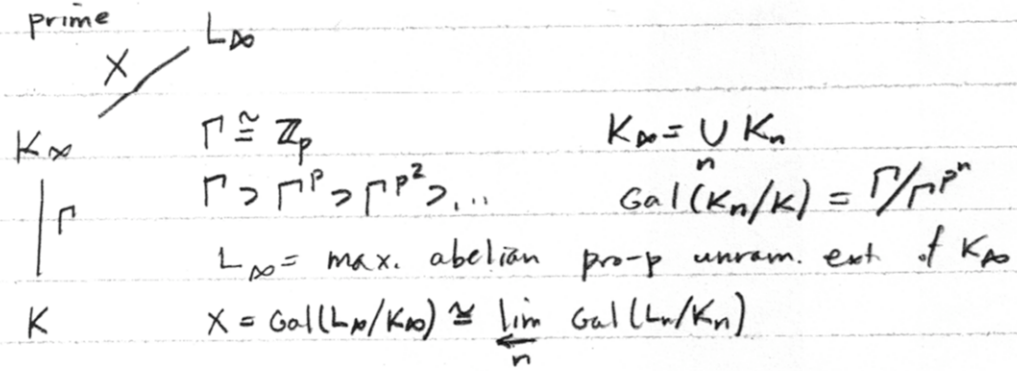 prime
L∞
X
K∞ Γ ≅ ℤp K∞ = ∪n Kn
Γ Γ ⊃ Γ^p ⊃ Γ^p² ⊃ ... Gal(Kn/K) = Γ/Γ^pⁿ
L∞ = max. abelian pro-p unram. ext. of K∞
K X = Gal(L∞/K∞) ≅ lim←n Gal(Ln/Kn)